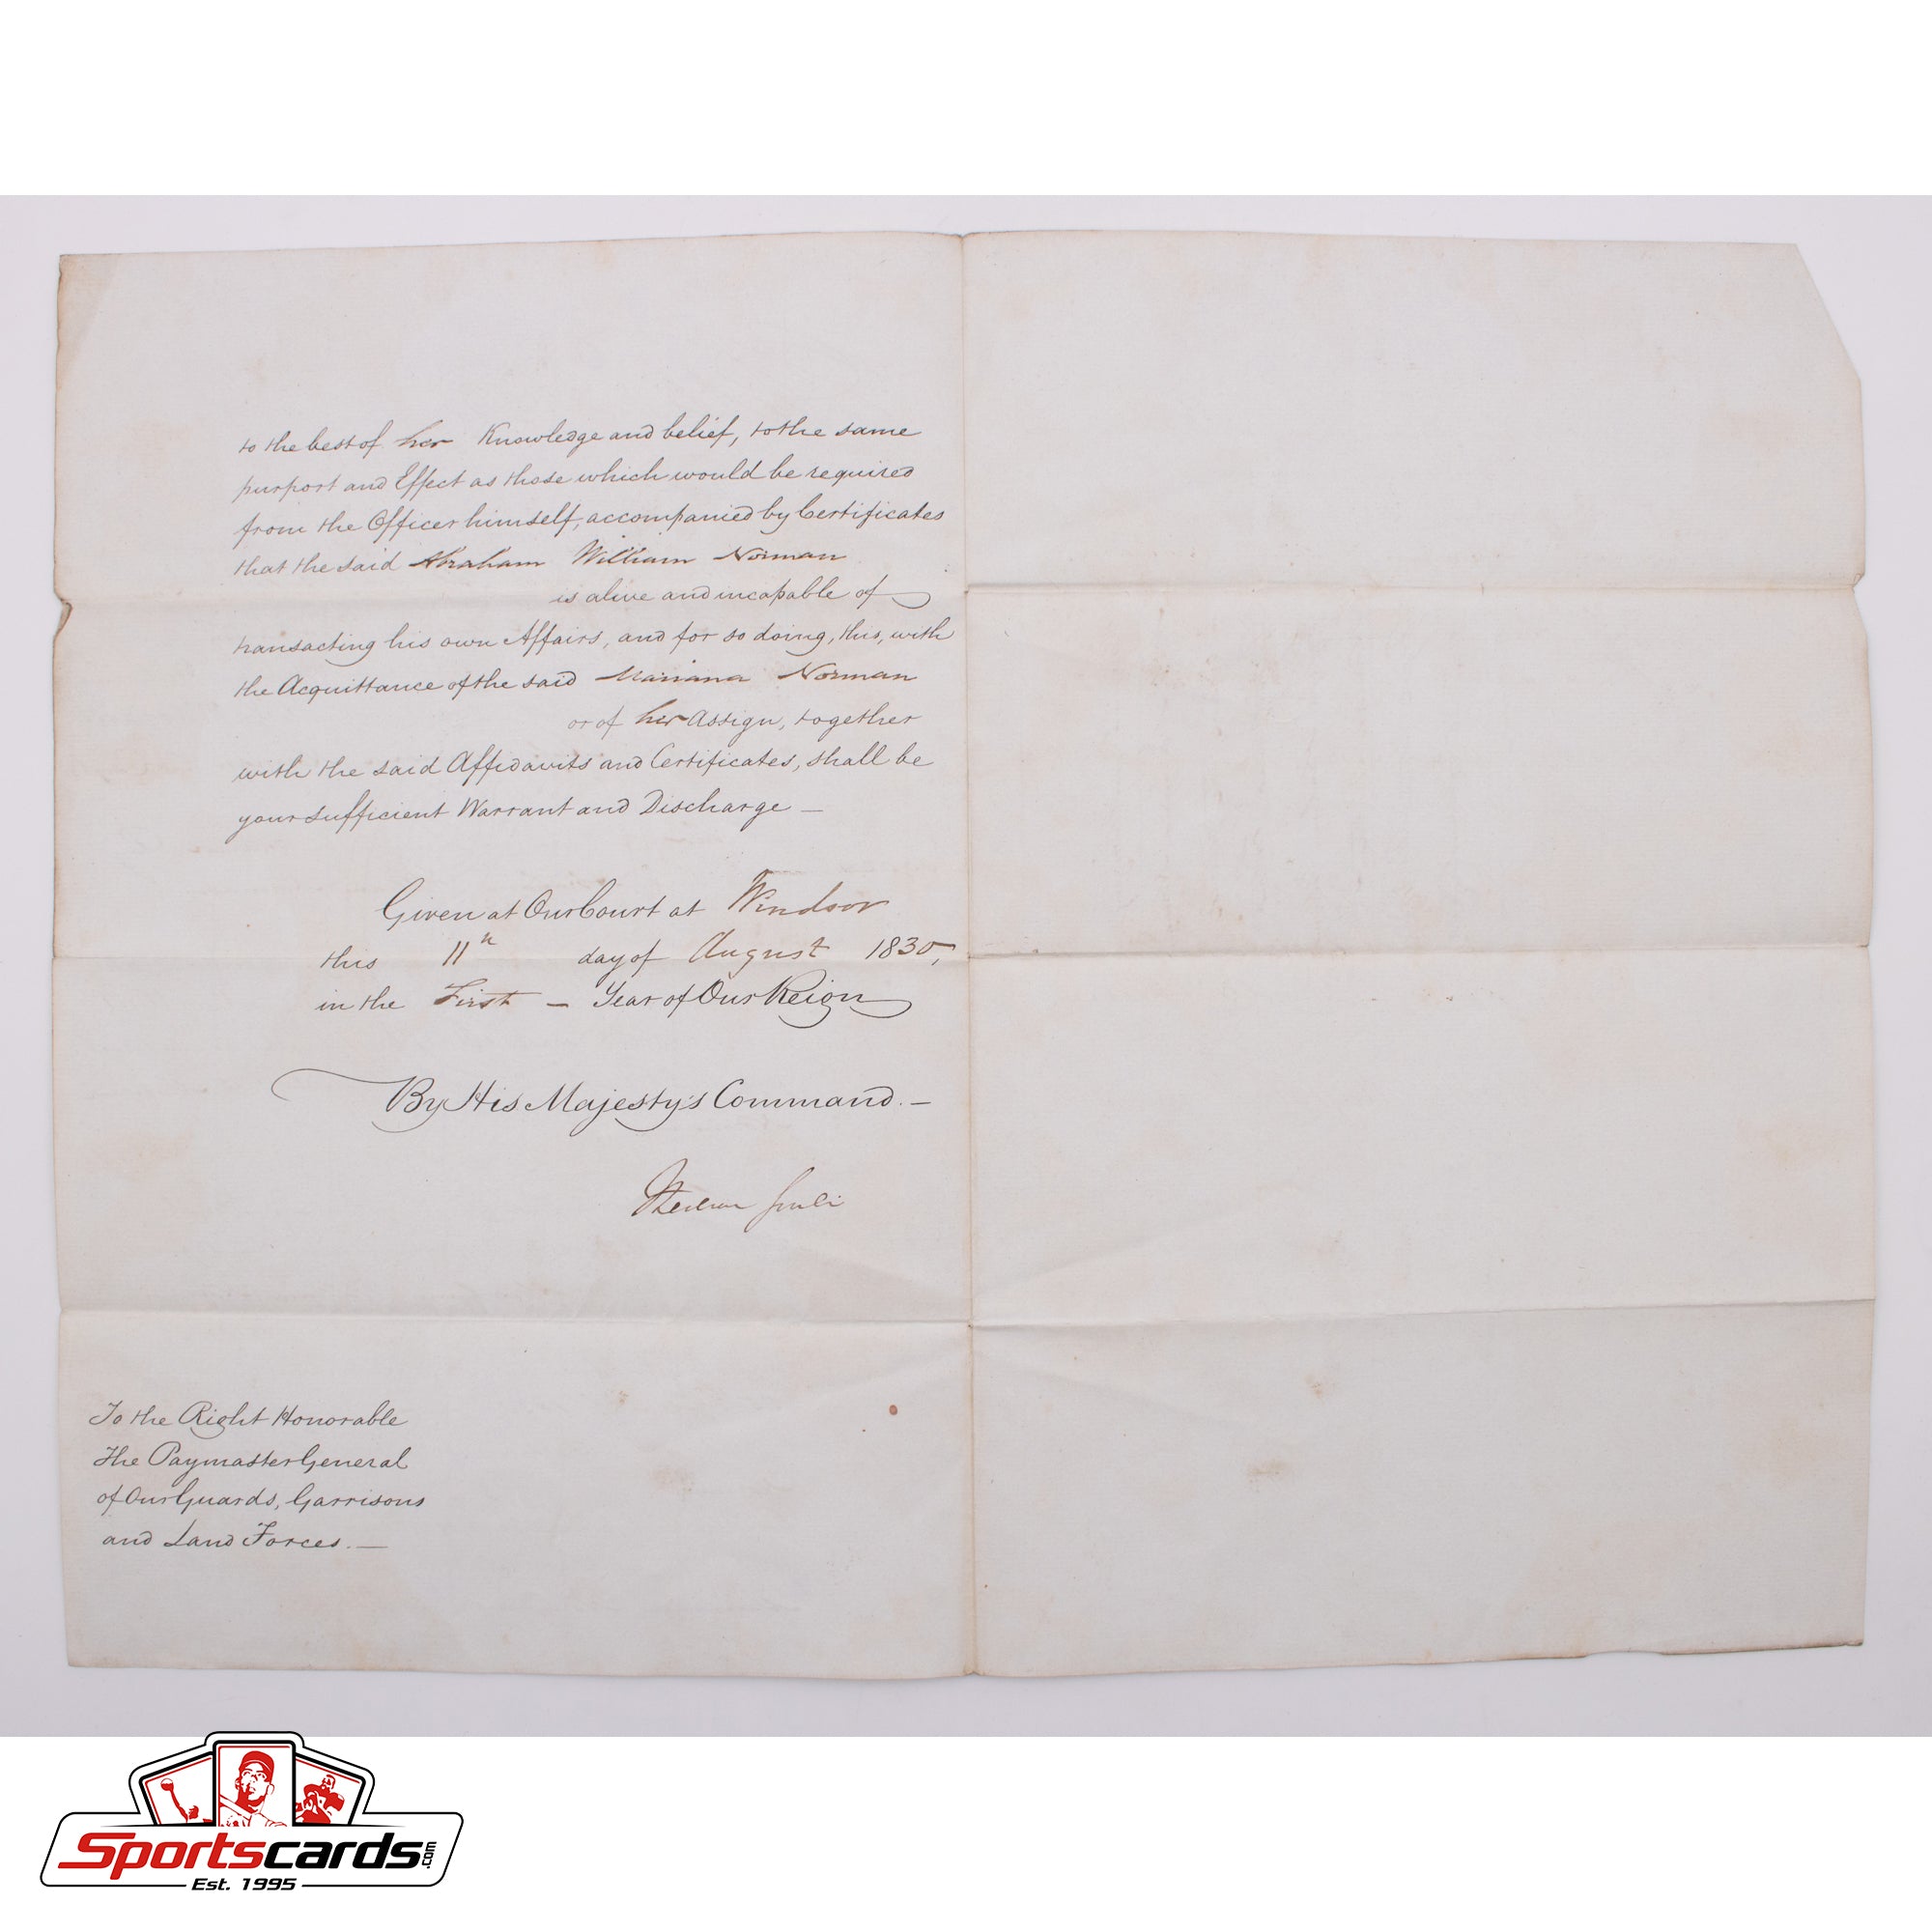 to the best of her Knowledge and belief, to the same
purport and Effect as those which would be required
from the Officer himself, accompanied by Certificates
that the said Abraham William Norman
is alive and incapable of
transacting his own Affairs, and for so doing, this, with
the Acquittance of the said Mariana Norman
or of her Assign, together
with the said Affidavits and Certificates, shall be
your sufficient Warrant and Discharge —
Given at Our Court at Windsor
this 11th day of August 1830,
in the First — Year of Our Reign
By His Majesty's Command. —
To the Right Honorable
The Paymaster General
of Our Guards, Garrisons
and Land Forces. —
Sportscards.com
Est. 1995